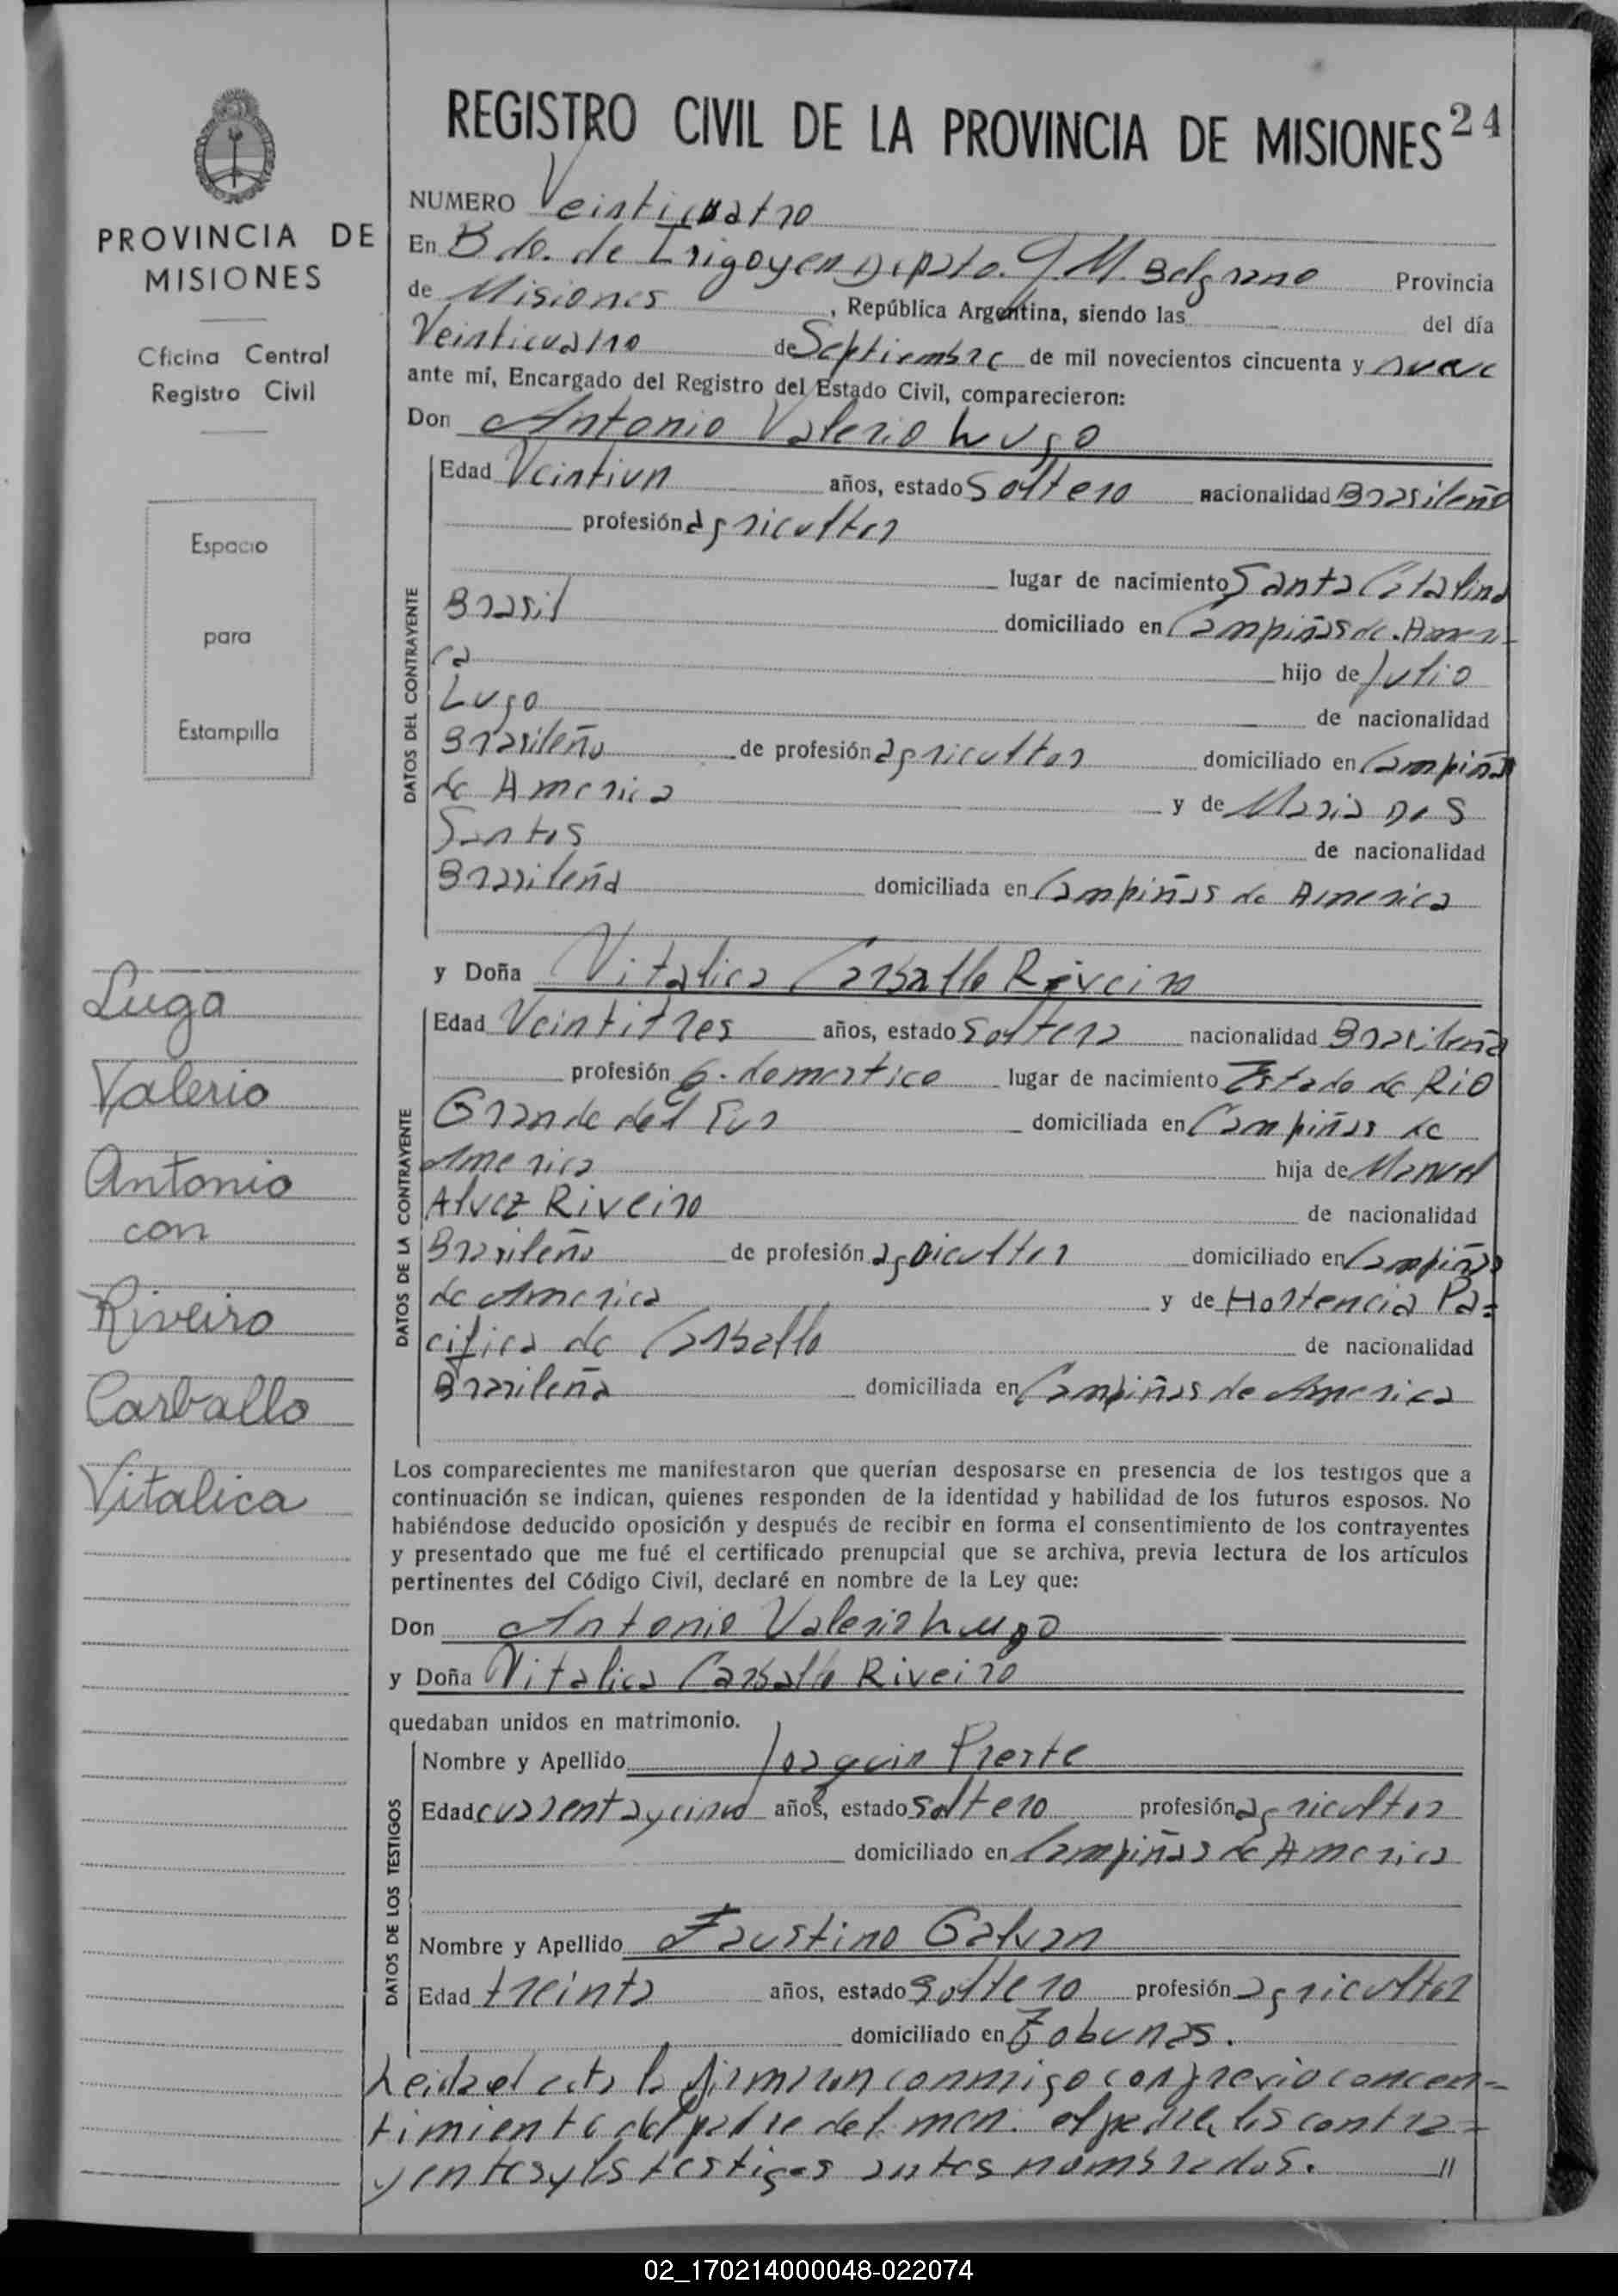 REGISTRO CIVIL DE LA PROVINCIA DE MISIONES 24
PROVINCIA DE
MISIONES
Oficina Central
Registro Civil
Espacio
para
Estampilla
Lugo
Valerio
Antonio
con
Riveiro
Carballo
Vitalica
NUMERO Veinticuatro
En Bdo. de Irigoyen Depato. G M. Belgrano Provincia
de Misiones, República Argentina, siendo las del día
Veinticuatro de Septiembre de mil novecientos cincuenta y nueve
ante mí, Encargado del Registro del Estado Civil, comparecieron:
Don Antonio Valerio Lugo
DATOS DEL CONTRAYENTE
Edad Veintiun años, estado Soltero nacionalidad Brasileño
profesión agricultor
lugar de nacimiento Santa Catalina
Brasil domiciliado en Campiñas de Ameri-
ca hijo de Julio
Lugo de nacionalidad
Brasileño de profesión agricultor domiciliado en Campiña
de America y de Maria Dos
Santos de nacionalidad
Brasileña domiciliada en Campiñas de America
y Doña Vitalica Carballo Riveiro
DATOS DE LA CONTRAYENTE
Edad Veintitres años, estado Soltera nacionalidad Brasileña
profesión q. domestico lugar de nacimiento Estado de Rio
Grande del Sur domiciliada en Campiñas de
America hija de Manuel
Alvez Riveiro de nacionalidad
Brasileño de profesión agricultor domiciliado en Campiñas
de America y de Hortencia Pa=
cifica de Carballo de nacionalidad
Brasileña domiciliada en Campiñas de America
Los comparecientes me manifestaron que querían desposarse en presencia de los testigos que a
continuación se indican, quienes responden de la identidad y habilidad de los futuros esposos. No
habiéndose deducido oposición y después de recibir en forma el consentimiento de los contrayentes
y presentado que me fué el certificado prenupcial que se archiva, previa lectura de los artículos
pertinentes del Código Civil, declaré en nombre de la Ley que:
Don Antonio Valerio Lugo
y Doña Vitalica Carballo Riveiro
quedaban unidos en matrimonio.
DATOS DE LOS TESTIGOS
Nombre y Apellido Joaquin Preste
Edad cuarenta y cinco años, estado Soltero profesión agricultor
domiciliado en Campiñas de America
Nombre y Apellido Faustino Galvan
Edad treinta años, estado Soltero profesión agricultor
domiciliado en Tobunas.
Leida el acta la firmaron conmigo con previo concen=
timiento del padre del men. el padre, los contra=
yentes y los testigos antes nombrados. "
02_170214000048-022074